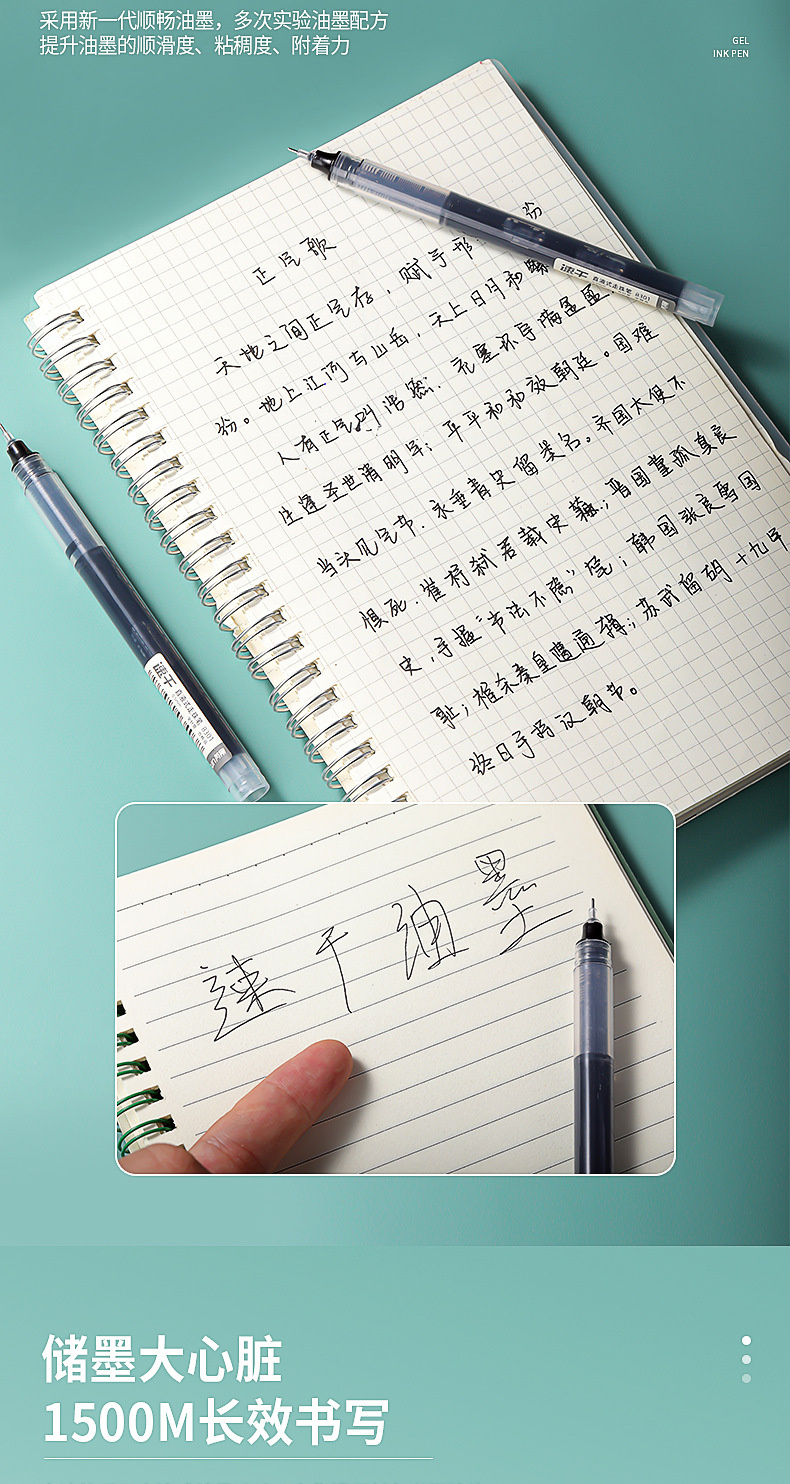 采用新一代顺畅油墨，多次实验油墨配方
提升油墨的顺滑度、粘稠度、附着力
GEL
INK PEN
正气歌
天地之间正气存，赋予形
份
份。地上江河与山岳，天上日月和
人有正气叫浩然，充塞环宇满
生逢圣世清明年；平平和和效朝廷。国难
当头见气节，永垂青史留美名。齐国太史不
惧死，崔杼弑君载史籍；晋国董狐真良
史，手握"书法不隐"笔；韩国张良雪国
耻；椎杀秦皇遭通缉；苏武留胡十九年
终日手持汉朝节。
速干
直液式走珠笔 8101
速干
直液式走珠笔 8101
速干油墨
储墨大心脏
1500M长效书写